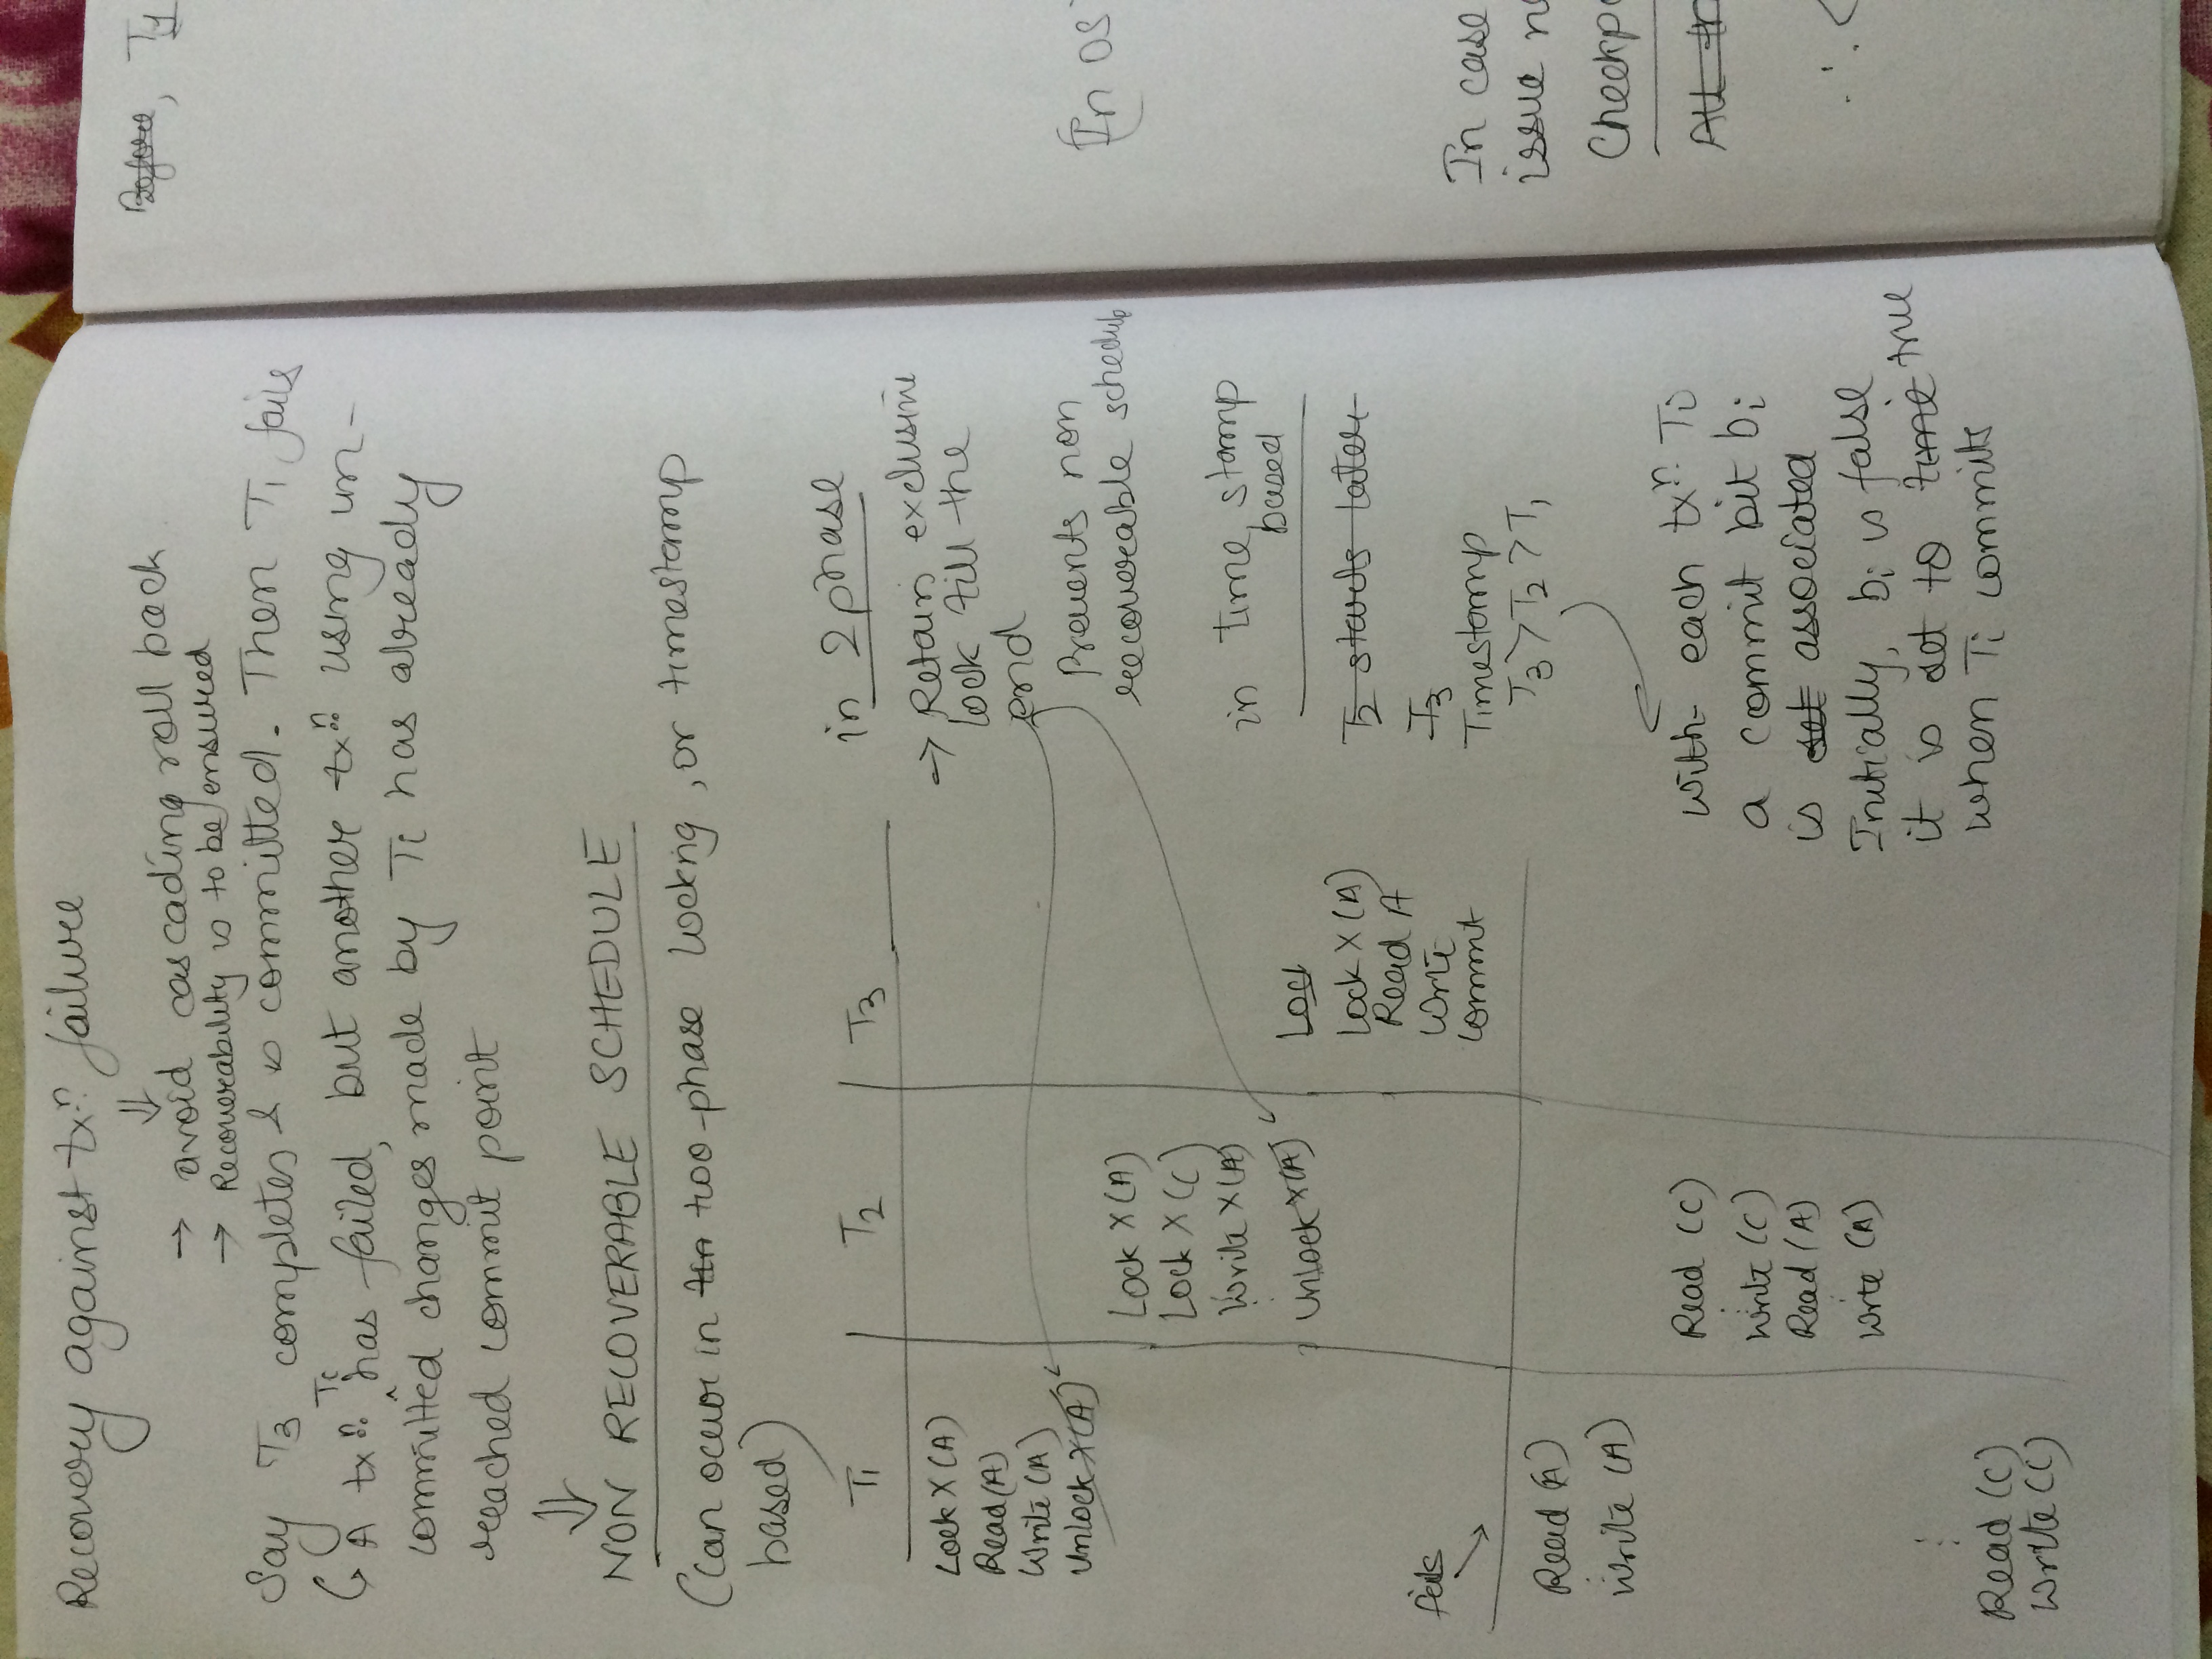 Recovery against txn. failure
⇓
→ avoid cascading roll back
→ Recoverability is to be ensured
Say T3 completes & is committed. Then T1 fails
↳ A txn. Ti has failed, but another txn. using un-
committed changes made by Ti has already
reached commit point
⇓
NON RECOVERABLE SCHEDULE
(Can occur in two-phase locking, or timestamp
based)
T1 T2 T3
Lock X(A)
Read(A)
Write (A)
Unlock X(A)
Lock X(A)
Lock X(C)
Write X(A)
Unlock X(A)
Loc
Lock X(A)
Read A
Write
Commit
fails
Read (A)
Write (A)
Read (C)
Write (C)
Read (A)
Write (A)
Read (C)
Write (C)
in 2 phase
→ Retain exclusive
lock till the
end
Prevents non
recoverable schedule
in time stamp
based
T2 starts later
T3
Timestamp
T3 > T2 > T1
With each txn. Ti
a commit bit bi
is set associated
Initially, bi is false
it is set to time true
when Ti commits
Before, T1
(In OS
In case
issue n
Checkpo
All tr
∴